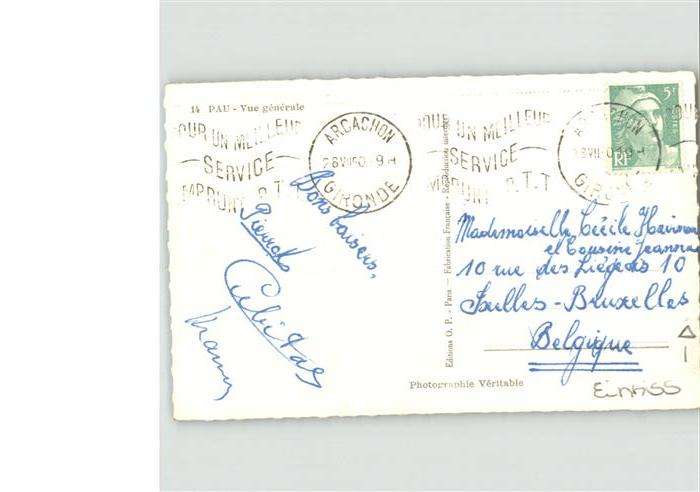 14 PAU - Vue générale
POUR UN MEILLEUR
SERVICE
EMPRUNT P.T.T
ARCACHON
GIRONDE
POUR UN MEILLEUR
SERVICE
EMPRUNT P.T.T
ARCACHON
GIRONDE
5F
RF
Bons baisers,
Pierrot
Editions O. P. - Paris - Fabrication Française - Reproduction interdite
Mademoiselle Cécile
et Cousine Jeanne
10 rue des Liégeois 10
Ixelles-Bruxelles
Belgique
Photographie Véritable